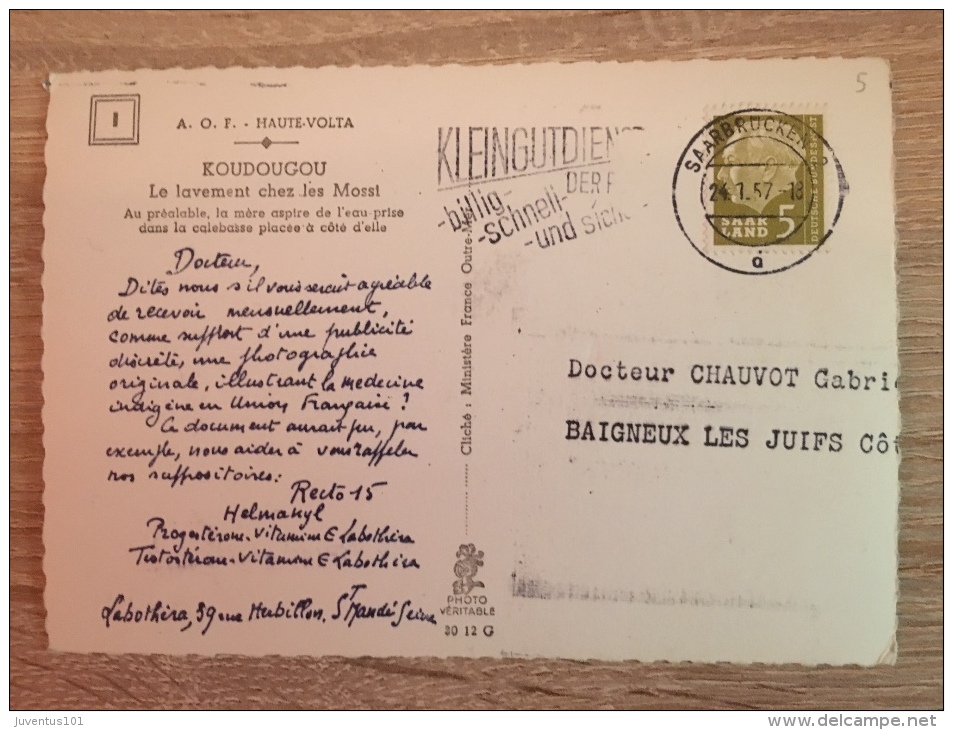 5
I
A. O. F. - HAUTE-VOLTA
KOUDOUGOU
Le lavement chez les Mossi
Au préalable, la mère aspire de l'eau prise
dans la calebasse placée à côté d'elle
Docteur,
Dites nous s'il vous serait agréable
de recevoir mensuellement,
comme support d'une publicité
discrète, une photographie
originale, illustrant la medecine
indigène en Union Française ?
Ce document aurait pu, par
exemple, nous aider à vous rappeler
nos suppositoires:
Recto 15
Helmanyl
Progestérone-Vitamine E Labothéra
Testostérone-Vitamine E Labothéra
Labothéra, 39 rue Herbillon, St Mandé Seine
Cliché : Ministère France Outre-Mer
PHOTO
VÉRITABLE
30 12 G
KLEINGUTDIENST
DER
-billig,-
-schnell-
-und sich
SAARBRÜCKEN 2
24.1.57-18
a
SAAR
LAND 5
DEUTSCHE BUNDESPOST
Docteur CHAUVOT Gabri
BAIGNEUX LES JUIFS Côt
juventus101
www.delcampe.net